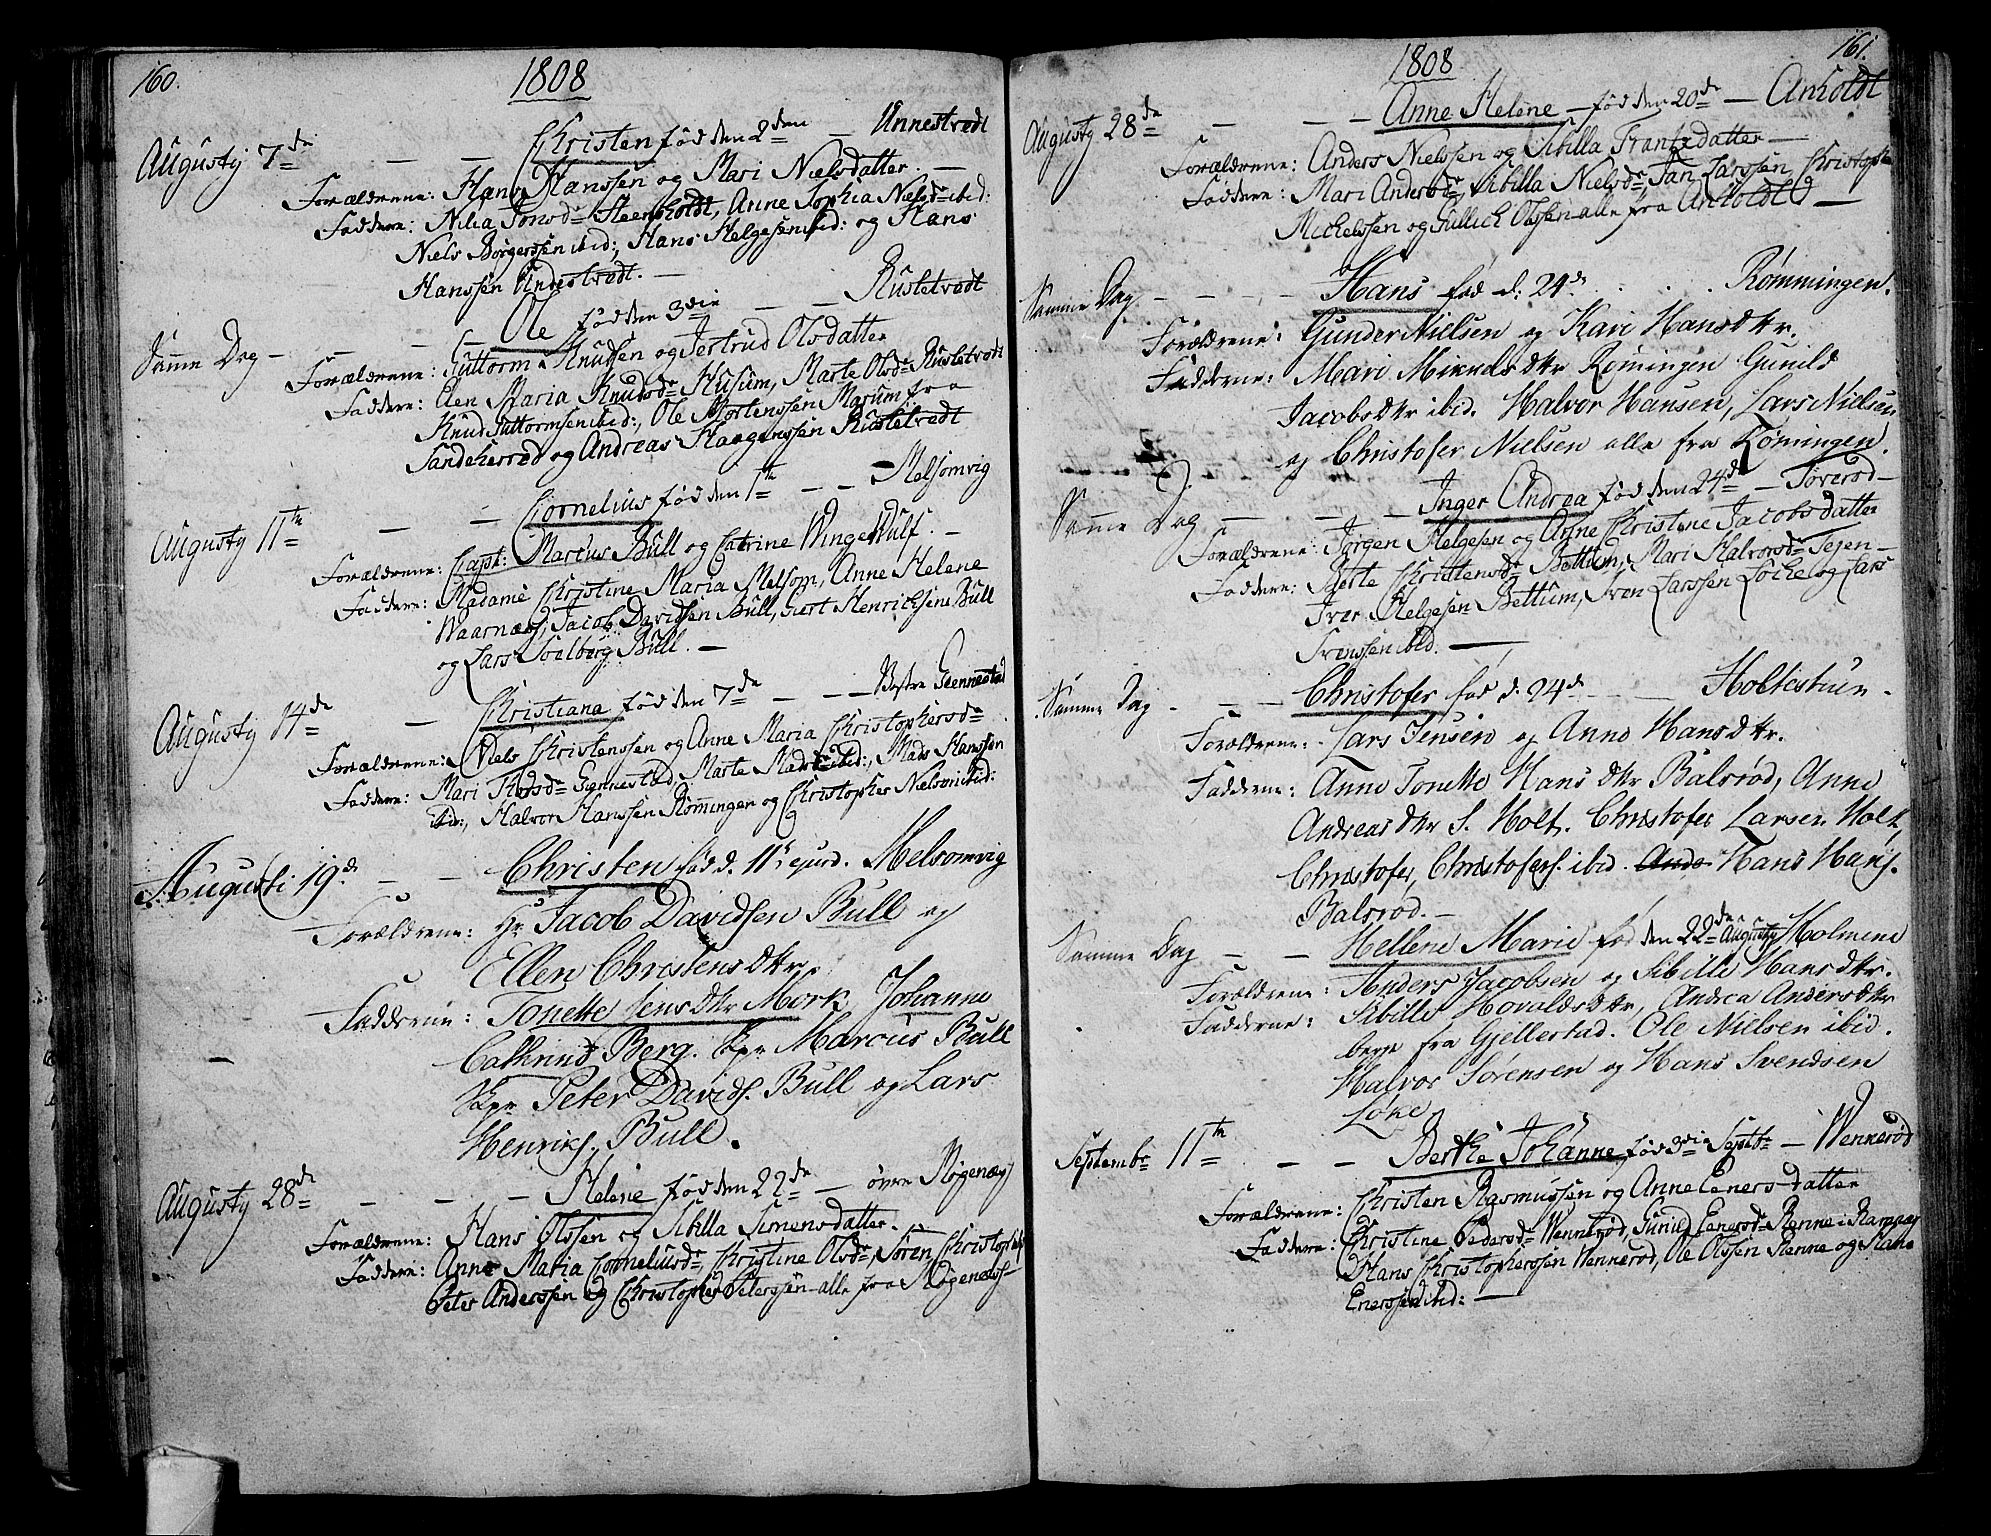 160.
1808
Augusty 7de — — Christen født den 2den — Unnestvedt
Forældrene: Hans Hanssen og Mari Nielsdatter. —
Faddere: Nilia Tonsdr Steenholdt, Anne Sophia Nielsdr ibid:
Niels Børgerssen ibid:, Hans Helgesen ibid: og Hans
Hanssen Undestvedt. —
Samme Dag — — — Ole født den 3die — — Rustetvedt
Forældrene: Guttorm Knudsen og Jertrud Olsdatter
Faddere: Elen Maria Knudsdr Husum, Marte Olsdr Rustetvedt
Knud Guttormsen ibid:, Ole Mortenssen Marum fra
Sandeherred og Andreas Haagenssen Rustetvedt
Augusty 11te — — Cornelius født den 1te — — Melsomvig
Forældrene: Capt: Marcus Bull og Catrine Winge Wulf. —
Faddere: Madame Christine Maria Melsom, Anne Helene
Waarnæs, Jacob Davidsen Bull, Giert Henrichsene Bull
og Lars Soelberg Bull. —
Augusty 14de — Christiana født den 7de — — — Vestre Giennestad
Forældrene: Niels Christenssen og Anne Maria Christophersdr
Faddere: Mari Thorsdr Giennestad, Marte Madsdr ibid:, Mads Hanssen
ibid:, Halvor Hanssen Rømmingen og Christopher Nielsen ibid:
Augusti 19de — — Christen fød d. 11te ejusd. Melsomvig
Forældrene: Hr Jacob Davidsen Bull og
Ellen Christensdtr
Fadderne: Tonette Jensdtr Mørk. Johanne
Cathrine Berg. Kpr Marcus Bull
Kpr Peter Davids. Bull og Lars
Henriks. Bull.
Augusty 28de — — — Helene født den 22de — øvre Røgenæs
Forældrene: Hans Olssen og Sibilla Simensdatter.
Faddere: Anne Maria Corneliusdr, Christine Olsdr, Søren Christophs
Peter Anderssen og Christopher Peterssen alle fra Røgenæss
161.
1808
Augusty 28de — — — Anne Helene — født den 20de — Anholdt
Forældrene: Anders Nielssen og Sibilla Frantzdatter —
Faddere: Mari Andersdr, Sibilla Nielsdr, Jan Larssen, Christoph
Michelssen og Gullich Olssen alle fra Anholdt —
Samme Dag — — — Hans fød d: 24de . . . Rømmingen.
Forældrene: Gunder Nielsen og Kari Hansdtr.
Fadderne: Mari Mikkelsdtr Rømingen Gunild
Jacobsdtr ibid. Halvor Hansen, Lars Nielsen
og Christofer Nielsen alle fra Rømingen.
Samme Dag — — — Inger Andrea født den 24de — Torerød —
Forældrene: Jørgen Helgesen og Anne Christene Jacobsdatter
Faddere: Berte Christensdr Bettum, Mari Halvorsdr Tejen —
Iver Helgesen Bettum, Sven Larssen Løcke og Lars
Svenssen ibid. —
Samme Dag — — — Christofer fød d: 24de — — Holtestuen —
Forældrene: Lars Jensen og Anne Hansdtr.
Fadderne: Anne Tonette Hansdtr Balsrød, Anne
Andreasdtr S. Holt. Christofer Larsen Holt
Christofer, Christofers. ibid. Ands Hans Hans.
Balsrød. —
Samme Dag — — Hellene Marie fød den 22de Augusty Holmene
Forældrene: Anders Jacobsen og Sibille Hansdtr.
Fadderne: Sibille Hovaldsdtr, Andrea Andersdtr
begge fra Gjellestad. Ole Nielsen ibid.
Halvor Sørensen og Hans Svendsen
Løke
Septembr 11te — — Berthe Johanne, født 3die Septbr — Wennerød
Forældrene: Christen Rasmussen og Anne Enersdatter
Faddere: Christine Pedersdr Wennerød, Gunild Enersdr Renne i Ramnæs
Hans Christopherssen Wennerød, Ole Olssen Renne og Hans
Enerssen ibid: —